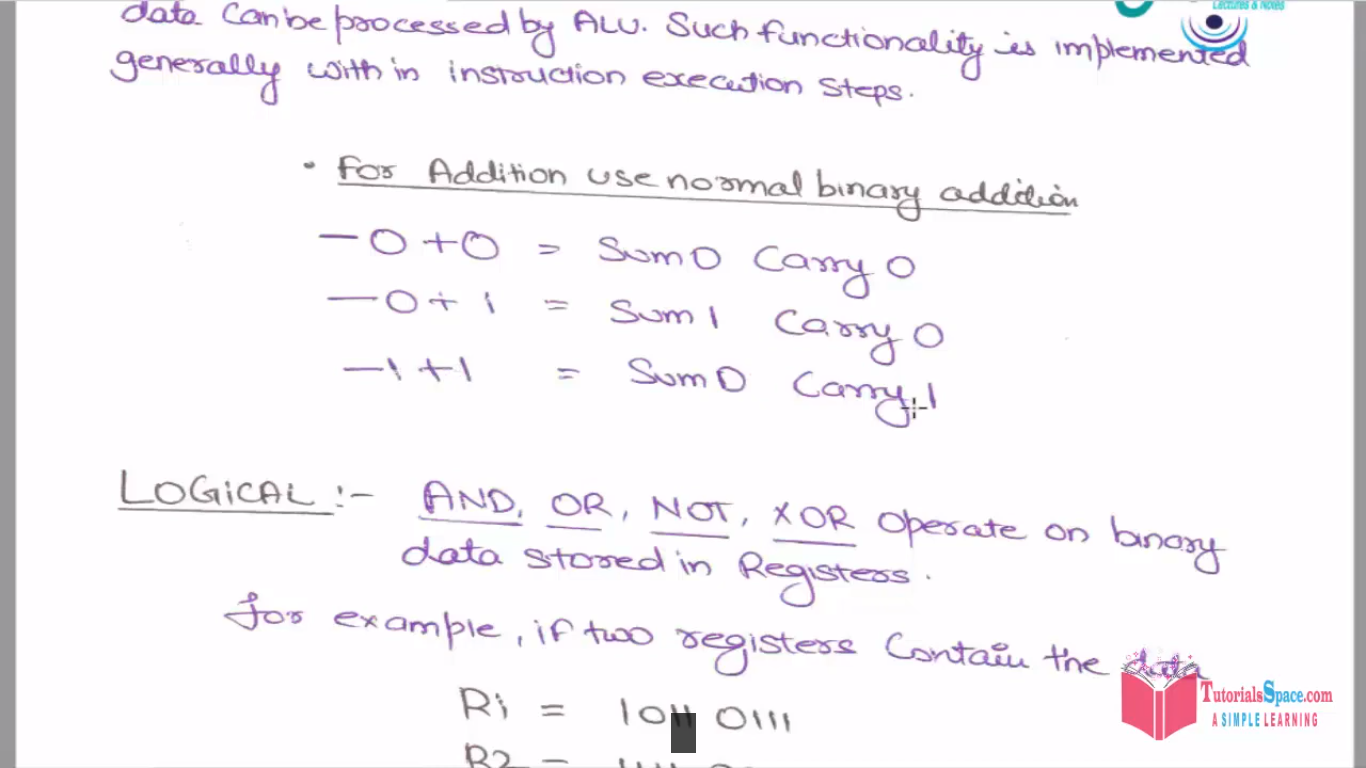 Lectures & Notes
data can be processed by ALU. Such functionality is implemented
generally with in instruction execution steps.
• For Addition use normal binary addition
— 0 + 0 = Sum 0 Carry 0
— 0 + 1 = Sum 1 Carry 0
— 1 + 1 = Sum 0 Carry 1
LOGICAL :- AND, OR, NOT, XOR operate on binary
data stored in Registers.
for example, if two registers contain the data
R1 = 1011 0111
R2 =
TutorialsSpace.com
A SIMPLE LEARNING